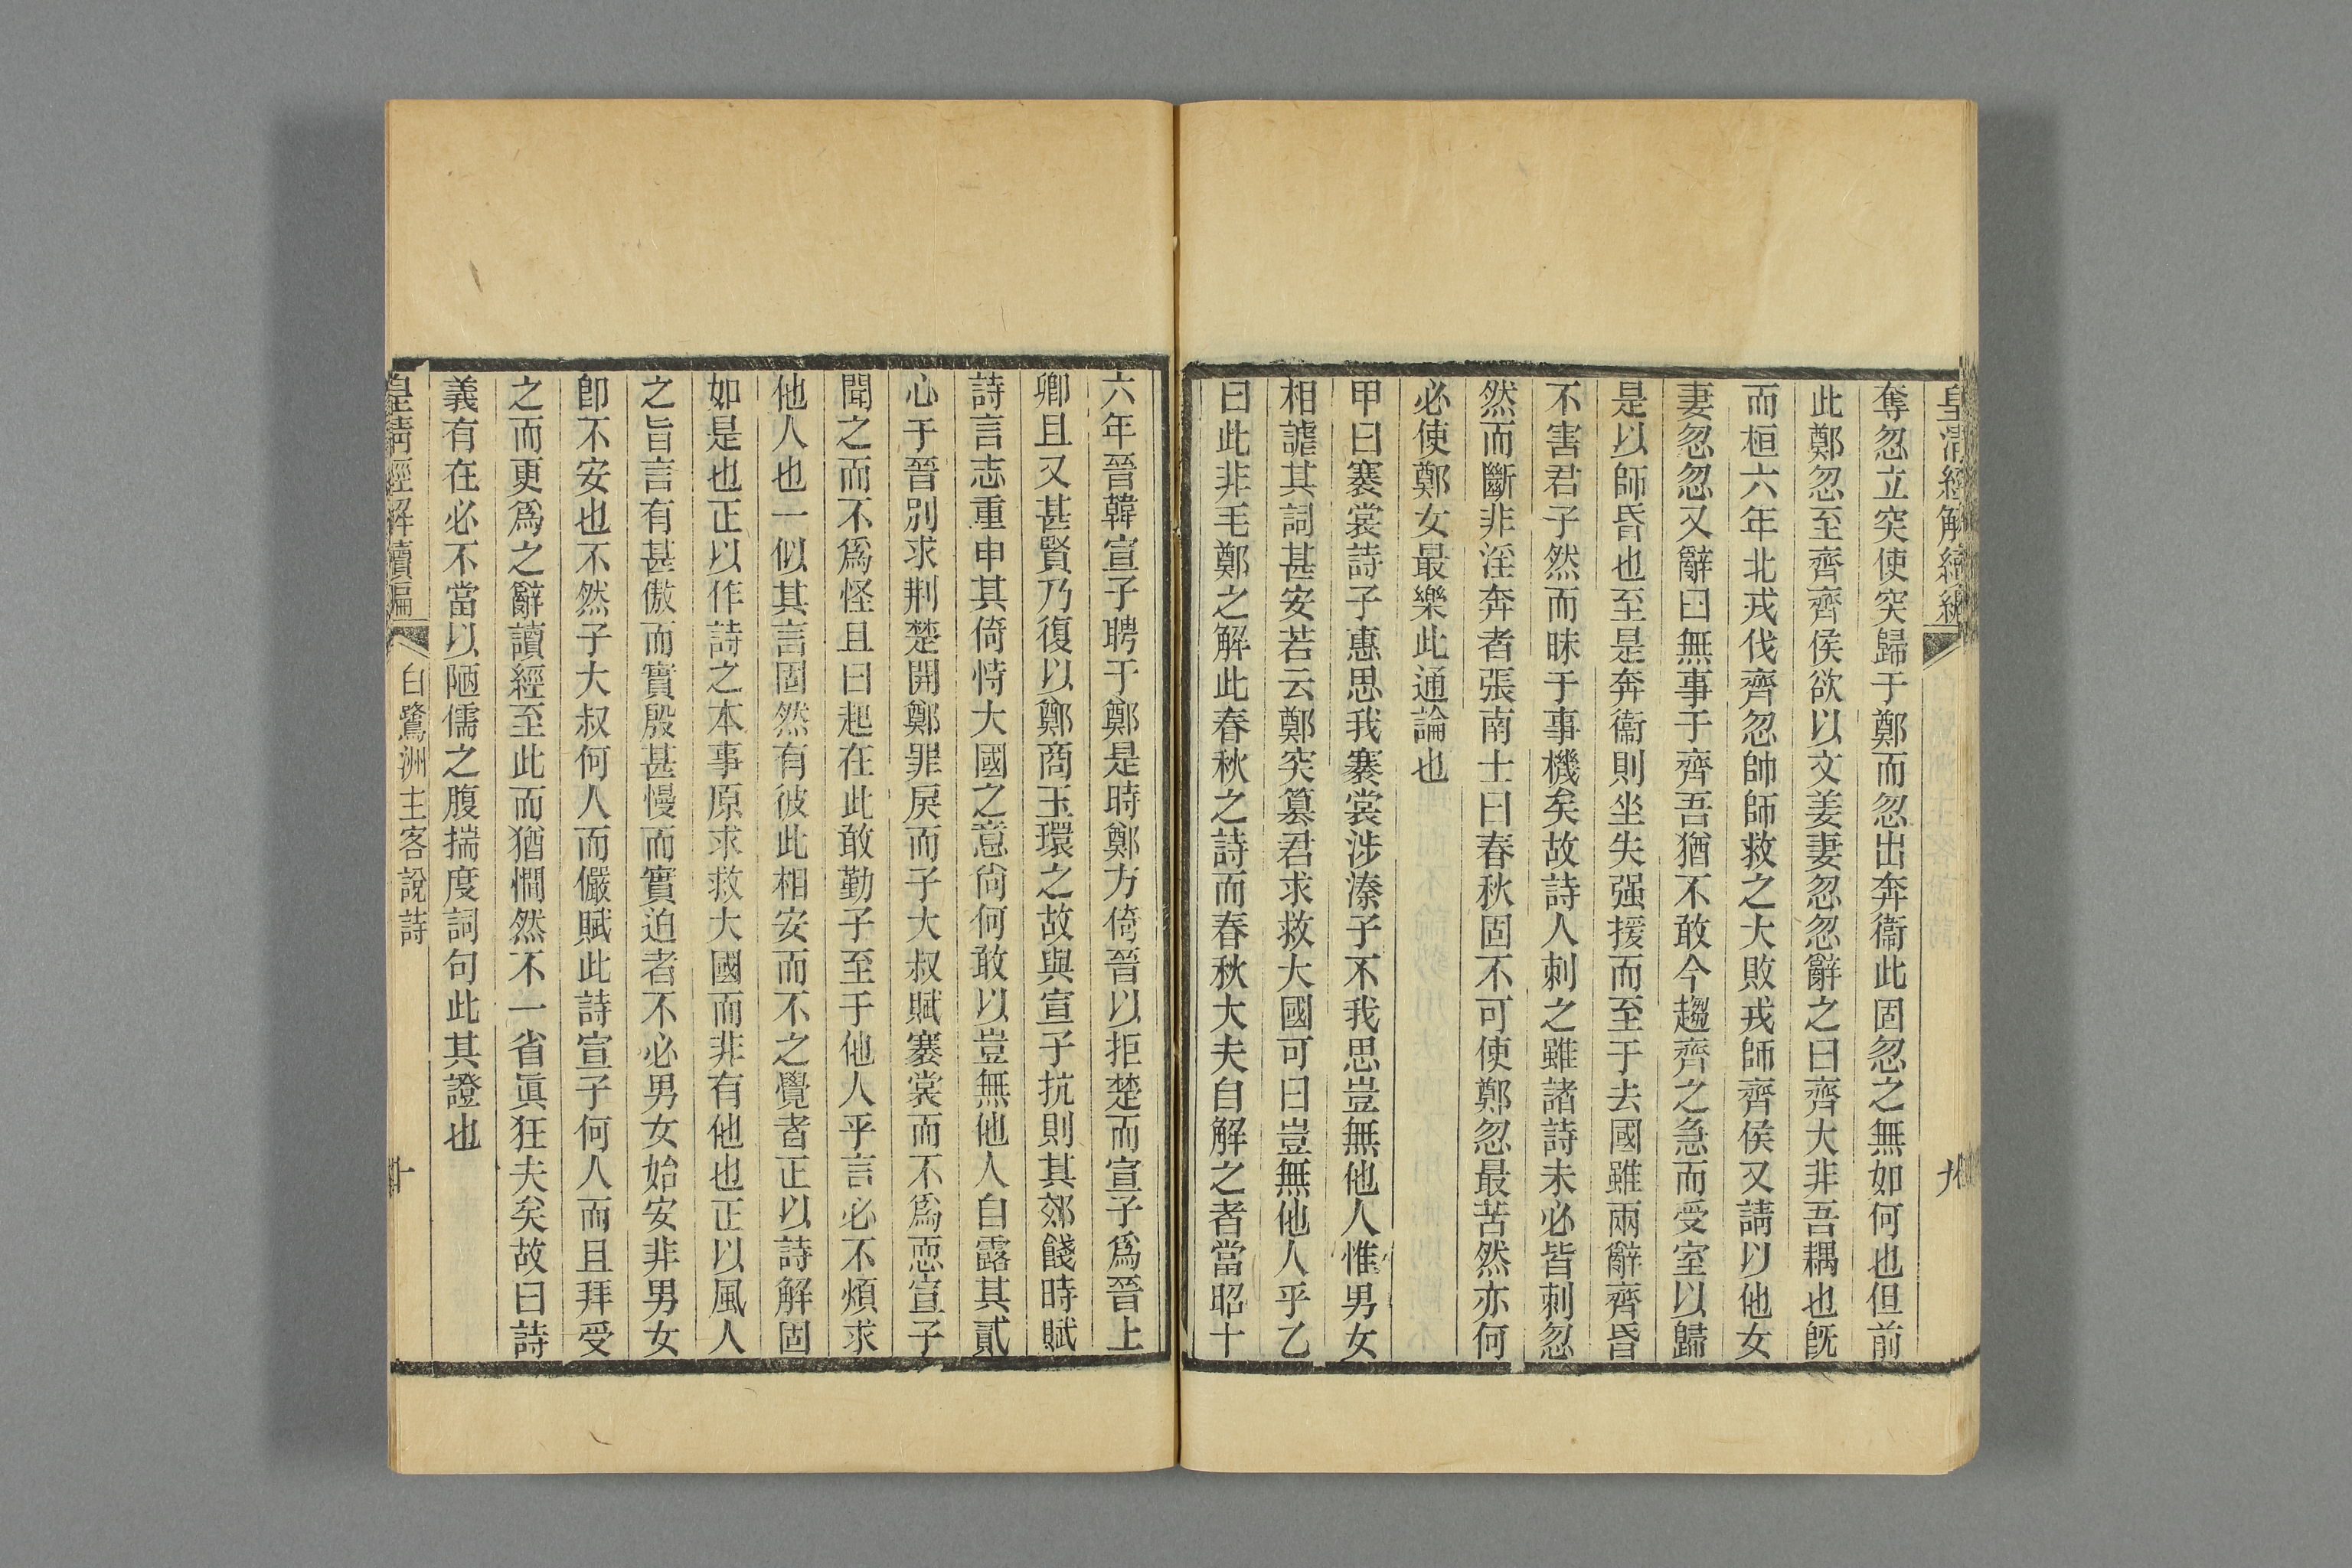 皇清經解續編
九
奪忽立突使突歸于鄭而忽出奔衞此固忽之無如何也但前
此鄭忽至齊齊侯欲以文姜妻忽忽辭之曰齊大非吾耦也旣
而桓六年北戎伐齊忽帥師救之大敗戎師齊侯又請以他女
妻忽忽又辭曰無事于齊吾猶不敢今趨齊之急而受室以歸
是以師昏也至是奔衞則坐失强援而至于去國雖兩辭齊昏
不害君子然而昧于事機矣故詩人刺之雖諸詩未必皆刺忽
然而斷非淫奔者張南士曰春秋固不可使鄭忽最苦然亦何
必使鄭女最樂此通論也
甲曰褰裳詩子惠思我褰裳涉溱子不我思豈無他人惟男女
相謔其詞甚安若云鄭突篡君求救大國可曰豈無他人乎乙
曰此非毛鄭之解此春秋之詩而春秋大夫自解之者當昭十
六年晉韓宣子聘于鄭是時鄭方倚晉以拒楚而宣子爲晉上
卿且又甚賢乃復以鄭商玉環之故與宣子抗則其郊餞時賦
詩言志重申其倚恃大國之意尙何敢以豈無他人自露其貳
心于晉別求荆楚開鄭罪戾而子大叔賦褰裳而不爲恧宣子
聞之而不爲怪且曰起在此敢勤子至于他人乎言必不煩求
他人也一似其言固然有彼此相安而不之覺者正以詩解固
如是也正以作詩之本事原求救大國而非有他也正以風人
之旨言有甚傲而實殷甚慢而實迫者不必男女始安非男女
卽不安也不然子大叔何人而儼賦此詩宣子何人而且拜受
之而更爲之辭讀經至此而猶憪然不一省眞狂夫矣故曰詩
義有在必不當以陋儒之腹揣度詞句此其證也
皇清經解續編
白鷺洲主客說詩
十